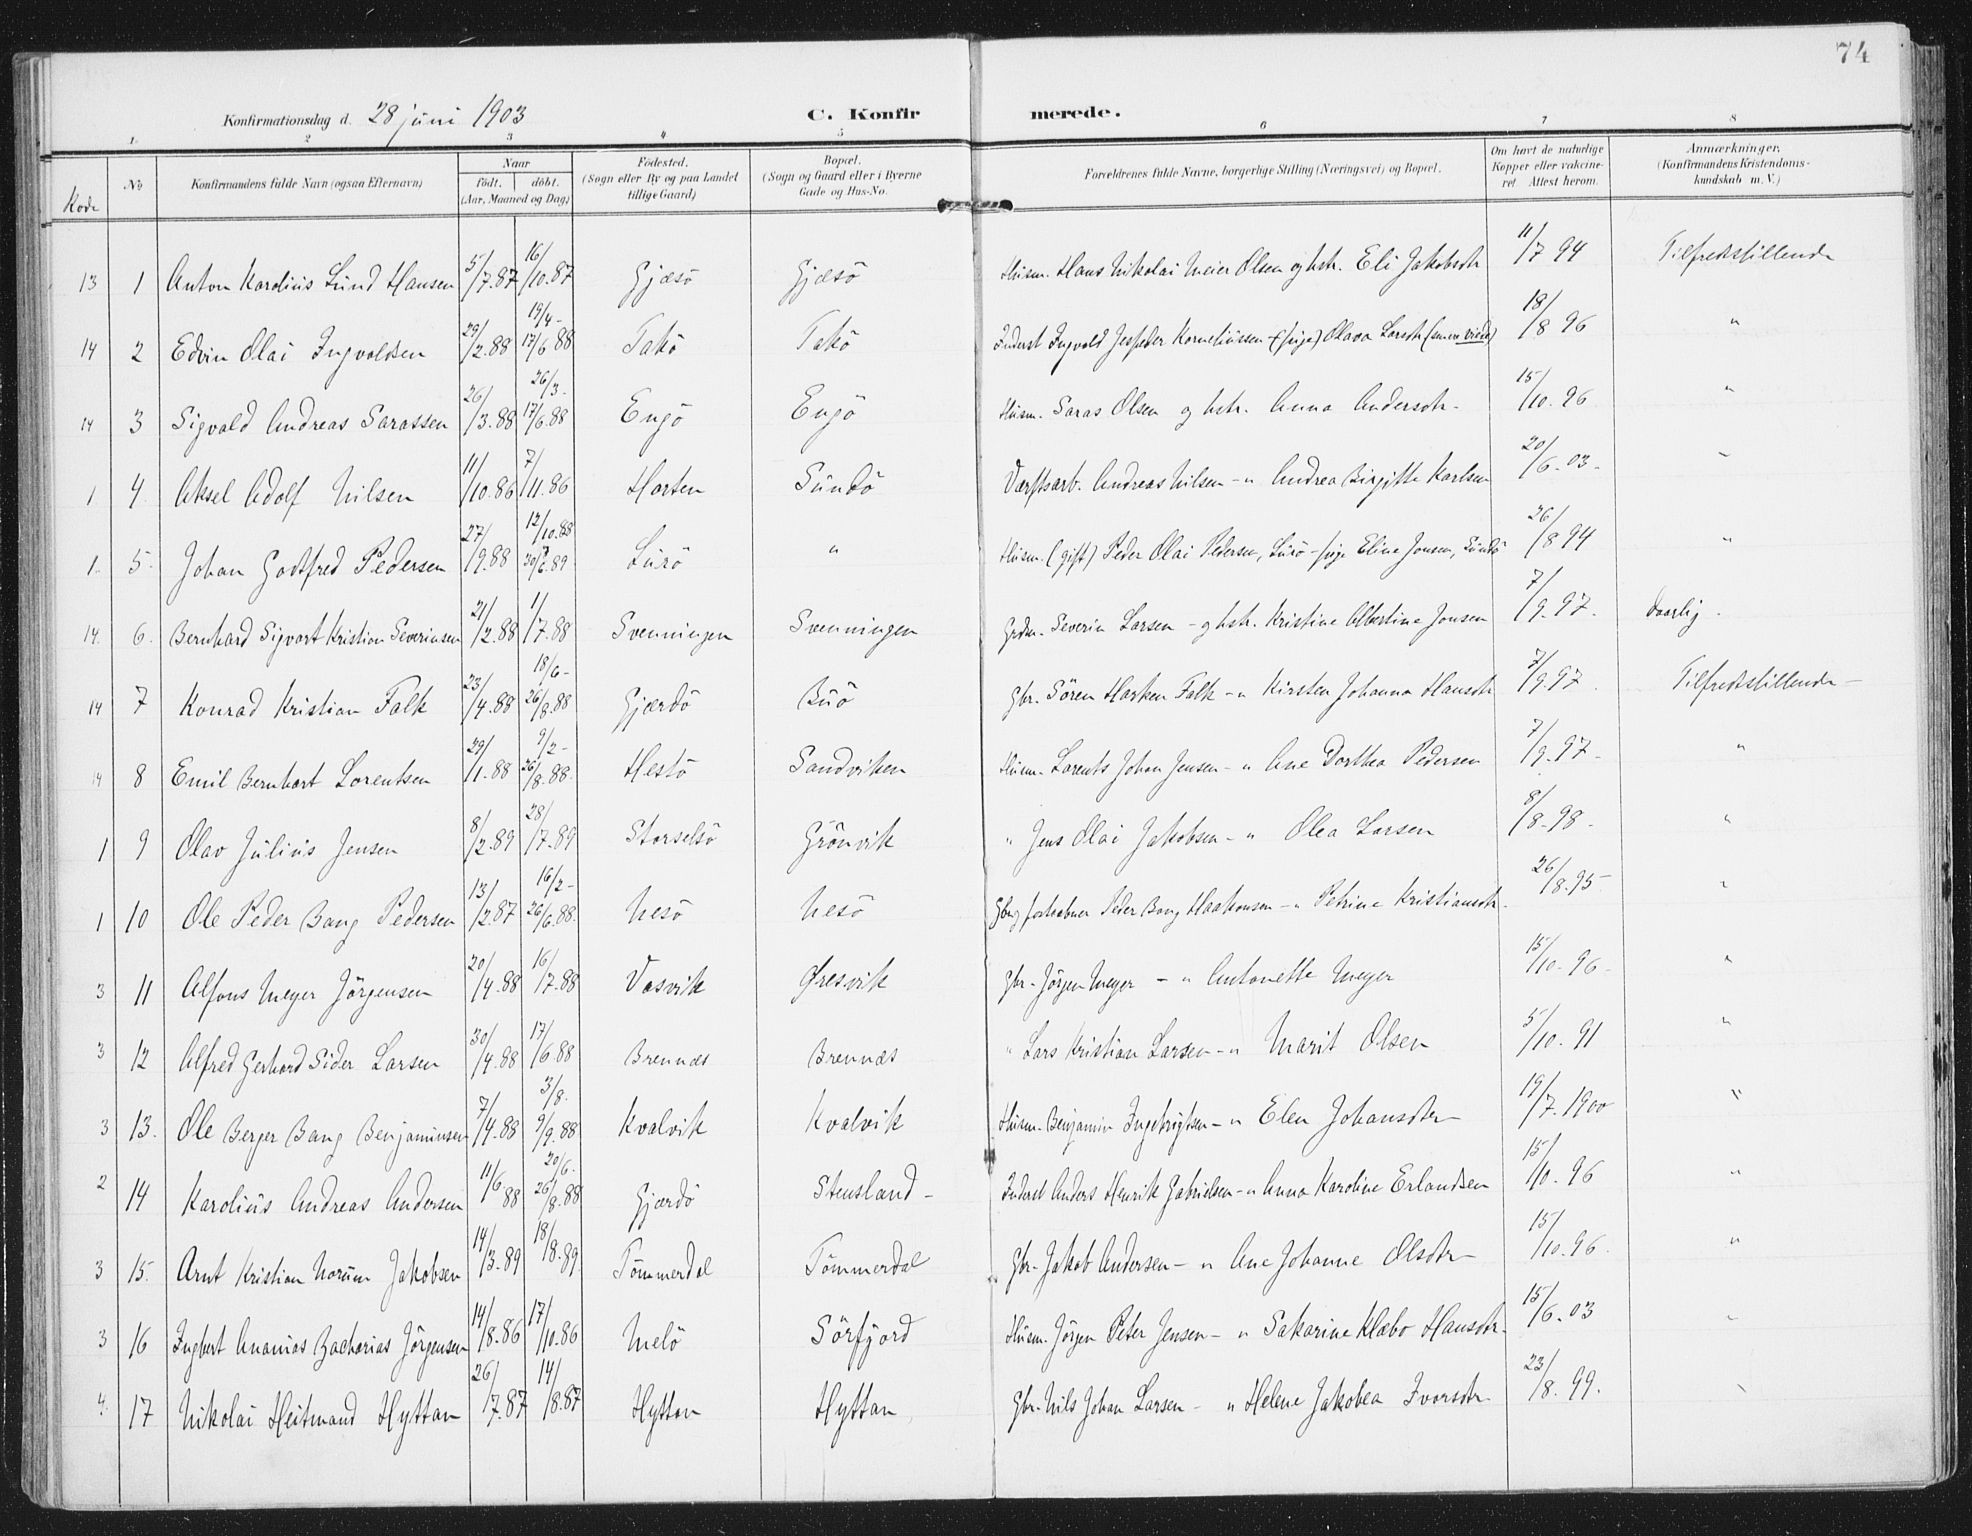 74
Konfirmationsdag d. 28 juni 1903 C. Konfir merede.
1. 2 3 4 5 6 7 8
Kode No Konfirmandens fulde Navn (ogsaa Efternavn) Naar født. døbt. (Aar, Maaned og Dag) Fødested. (Sogn eller By og paa Landet tillige Gaard) Bopæl. (Sogn og Gaard eller i Byerne Gade og Hus-No. Forældrenes fulde Navne, borgerlige Stilling (Næringsvei) og Bopæl. Om havt de naturlige Kopper eller vakcineret Attest herom. Anmærkninger. (Konfirmandens Kristendomskundskab m. V.)
13 1 Anton Karolius Lund Hansen 5/7.87 16/10.87 Gjæsö Gjæsö Husm. Hans Nikolai Meier Olsen og hstr. Eli Jakobsdtr 11/7 94 Tilfredsstillende
14 2 Edvin Olai Ingvaldsen 29/2.88 19/4- 17/6 88 Takö Takö Inderst Ingvald Jespeder Korneliussen - (pige) Olava Larsdtr (senere viede) 18/8 96 "
14 3 Sigvald Andreas Sarassen 26/3.88 26/3- 17/6.88 Engö Engö Husm. Saras Olsen og hstr. Anna Andersdtr. 15/10.96 "
1 4. Aksel Adolf Nilsen 11/10.86 7/11.86 Horten Sundö Værftsarb. Andreas Nilsen - " Andrea Birgitte Karlsen 20/6.03. "
1. 5. Johan Godtfred Pedersen 27/9.88 12/10.88 30/6.89 Lurö " Husm. (gift) Peder Olai Pedersen, Lurö - pige Eline Jonsen, Sundö 26/8 94 "
14. 6. Bernhard Sigvart Kristian Severinsen 21/2.88 1/7.88 Svenningen Svenningen Grdm. Severin Larsen - og hstr. Kristine Albertine Jonsen 7/9.97. daarlig.
14 7 Konrad Kristian Falk 23/4.88 18/6- 26/8.88 Gjærdö Buö Gbr. Sören Harken Falk - " Kirsten Johanna Hansdtr 7/9.97. Tilfredsstillende -
14 8 Emil Bernhart Lorentsen 29/1.88 9/2- 26/8.88. Hestö Sandviken Husm. Lorents Johan Jensen - " Ane Dorthea Pedersen 7/9.97. "
1 9 Olav Julius Jensen 8/2.89 28/7.89 Storselsö Grönvik " Jens Olai Jakobsen - " Olea Larsen 8/8.98. "
1 10 Ole Peder Bang Pedersen 13/12.87 16/2- 26/6.88. Nesö Nesö Peder Bang Haakonsen - " Petrine Kristiansdtr. 26/8.95. "
3 11 Alfons Meyer Jörgensen 20/4.88 16/7.88 Vasvik Øresvik Gbr. Jörgen Meyer - " Antonette Meyer 15/10.96. "
3 12 Alfred Gerhard Sider Larsen 30/4.88 17/6.88 Brennæs Brennæs " Lars Kristian Larsen - " Marit Olsen 5/10.91 "
3 13. Ole Berger Bang Benjaminsen 7/4.88 3/8. 9/9.88 Kvalvik Kvalvik Husm. Benjamin Ingebrigtsen - " Elen Johansdtr 19/7.1900 "
2 14 Karolius Andreas Andersen 11/6 88 20/6. 26/8.88 Gjærdö Stensland - Inderst Anders Henrik Gabrielsen - " Anna Karoline Erlandsen 15/10.96 "
3 15. Arnt Kristian Norum Jakobsen 14/3.89 18/8.89. Tömmerdal Tömmerdal Gbr. Jakob Andersen - " Ane Johanne Olsdtr 15/10.96. "
3 16 Ingbert Ananias Zacharias Jörgensen 14/8.86 17/10.86 Melö Sörfjord Husm. Jörgen Peter Jensen - " Sakarine Klæbo Hansdtr. 15/6.03 "
4. 17 Nikolai Heitmand Hyttan 26/7.87 14/8.87 Hyttan Hyttan Gbr. Nils Johan Larsen - " Helene Jakobea Ivarsdtr. 23/8.99. "